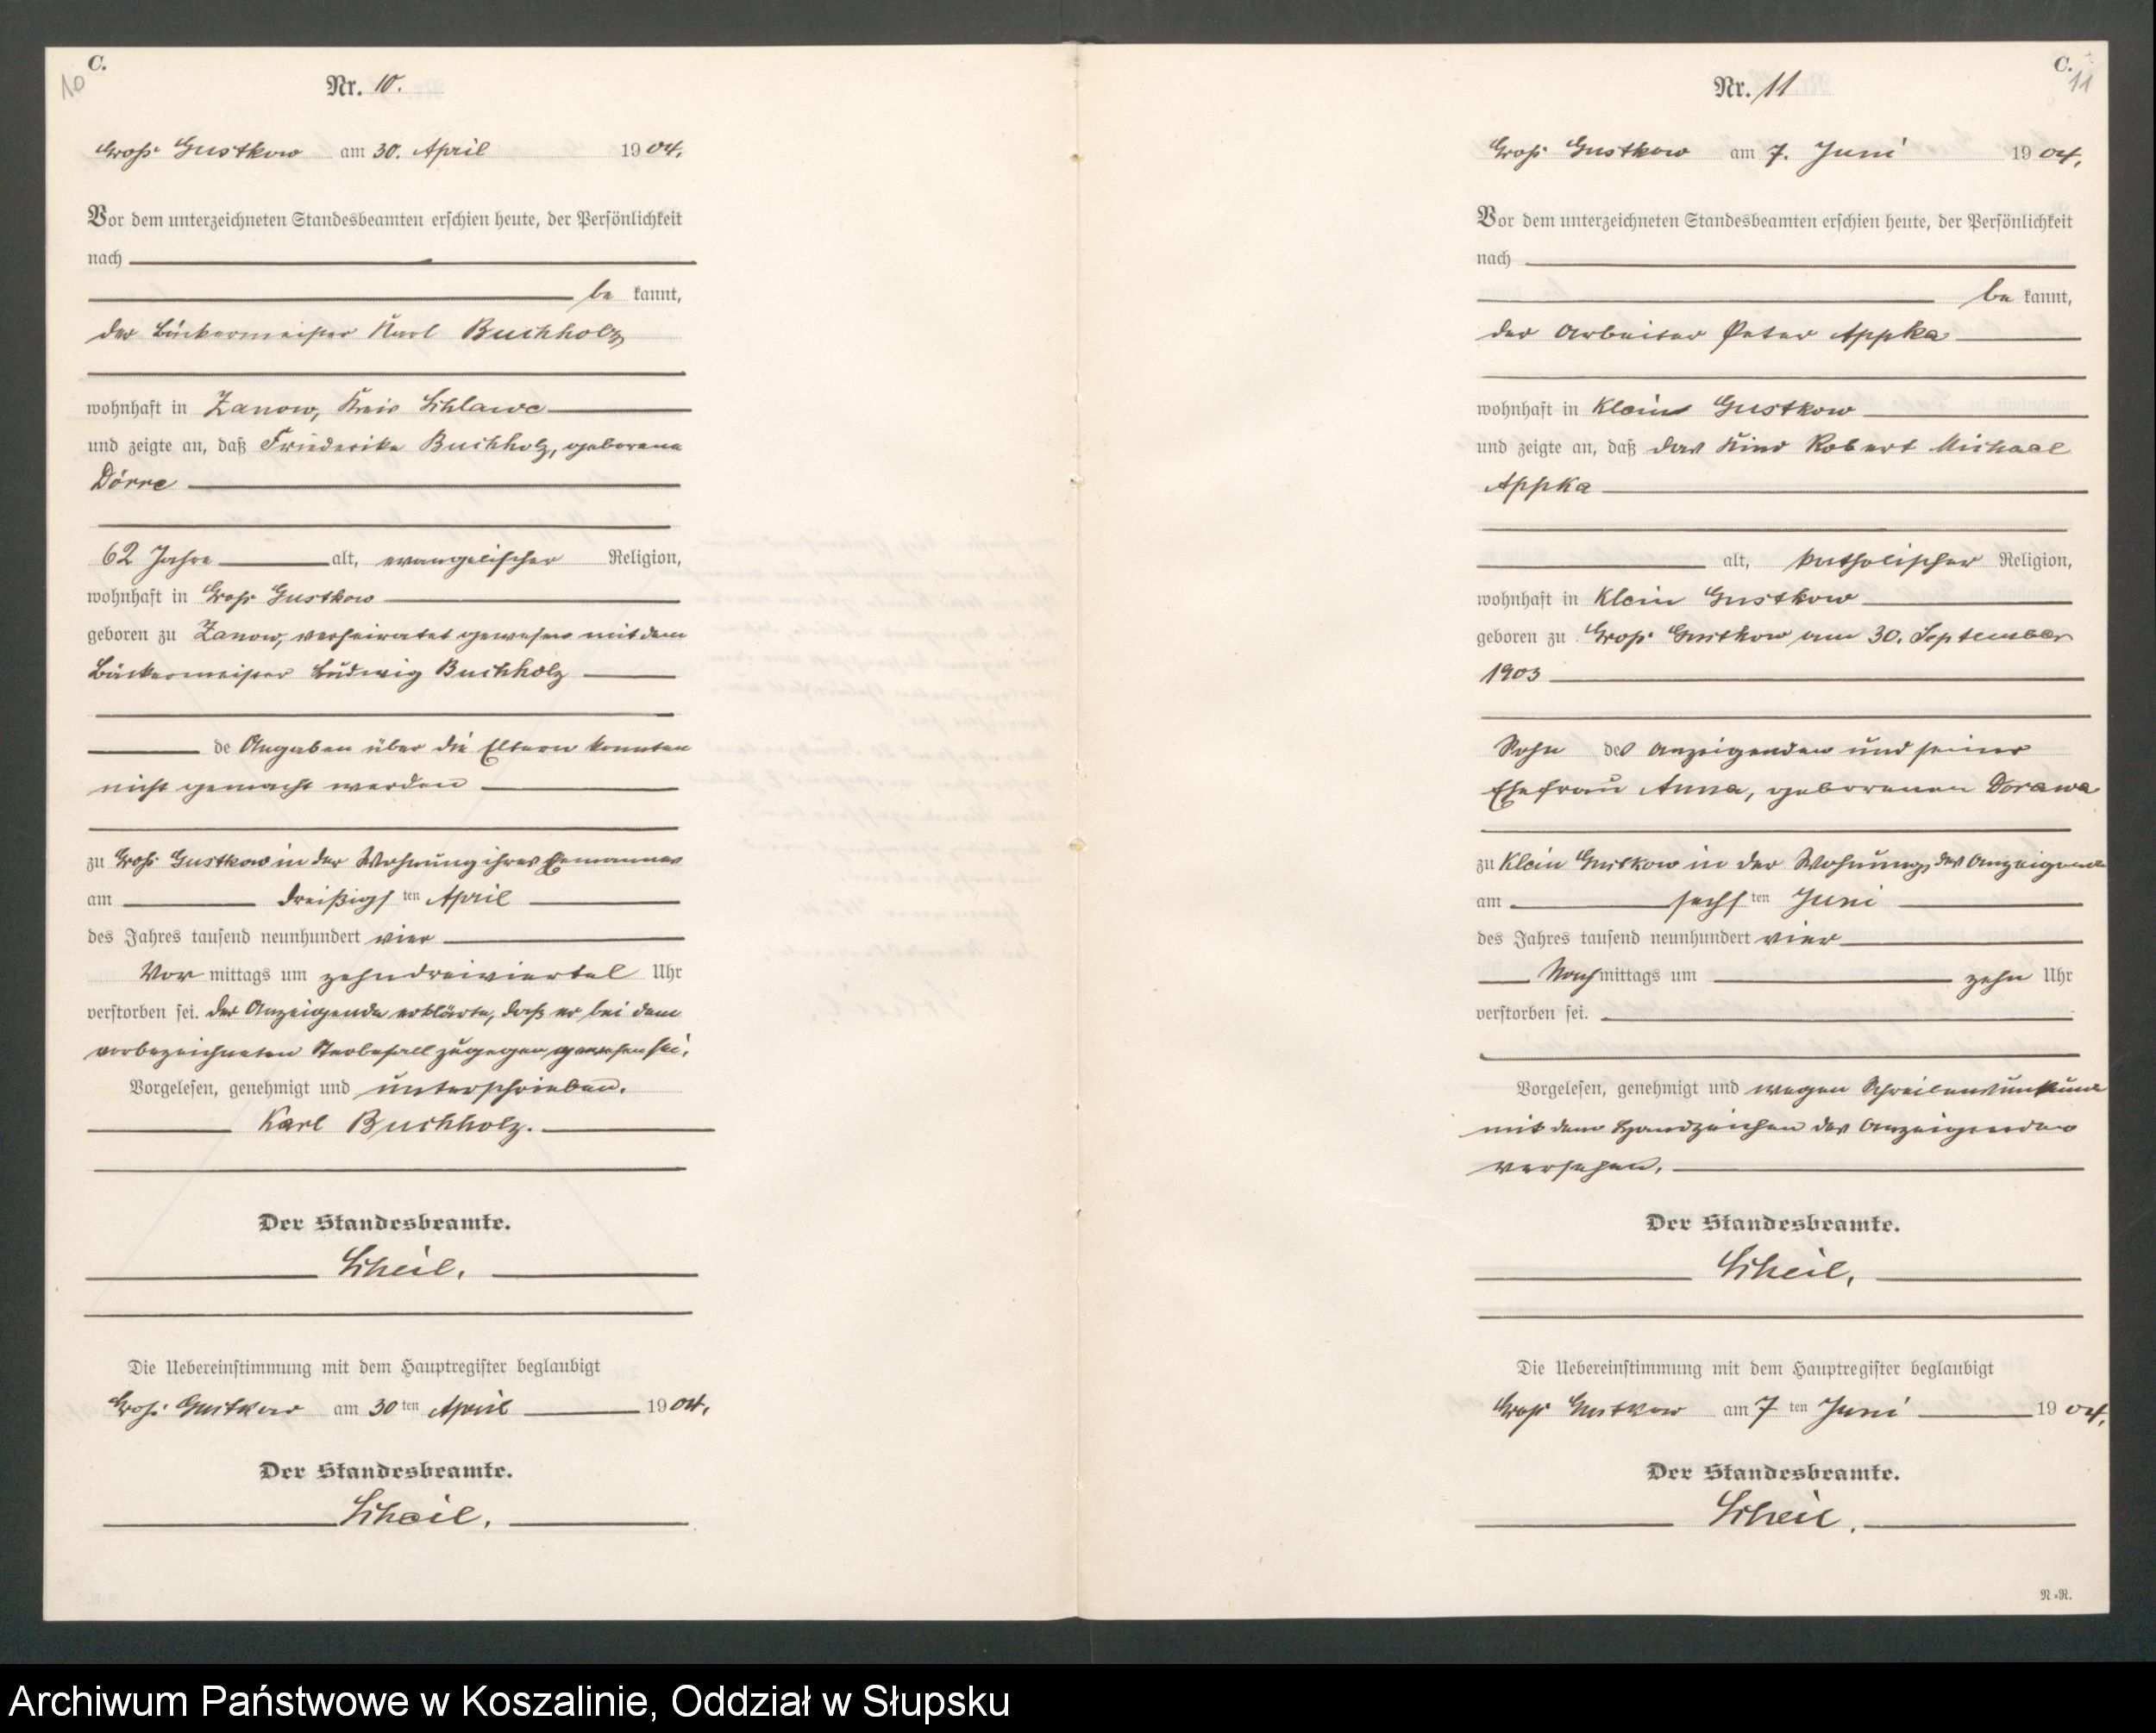 C.
10
Nr. 10.
Groß Gustkow am 30. April 1904.
Vor dem unterzeichneten Standesbeamten erschien heute, der Persönlichkeit
nach
be kannt,
der Bäckermeister Karl Buchholz
wohnhaft in Zanow, Kreis Schlawe
und zeigte an, daß Friederike Buchholz, geborene
Dörre
62 Jahre alt, evangelischer Religion,
wohnhaft in Groß Gustkow
geboren zu Zanow, verheiratet gewesen mit dem
Bäckermeister Ludwig Buchholz
de Angaben über die Eltern konnten
nicht gemacht werden
zu Groß Gustkow in der Wohnung ihres Ehemannes
am dreißigsten April
des Jahres tausend neunhundert vier
Vor mittags um zehn dreiviertel Uhr
verstorben sei. Der Anzeigende erklärte, daß er bei dem
vorbezeichneten Sterbefall zugegen gewesen sei.
Vorgelesen, genehmigt und unterschrieben.
Karl Buchholz.
Der Standesbeamte.
Scheil.
Die Uebereinstimmung mit dem Hauptregister beglaubigt
Groß Gustkow am 30ten April 1904.
Der Standesbeamte.
Scheil.
C.
11
Nr. 11
Groß Gustkow am 7. Juni 1904.
Vor dem unterzeichneten Standesbeamten erschien heute, der Persönlichkeit
nach
be kannt,
der Arbeiter Peter Appka
wohnhaft in Klein Gustkow
und zeigte an, daß das Kind Robert Michael
Appka
alt, katholischer Religion,
wohnhaft in Klein Gustkow
geboren zu Groß Gustkow am 30. September
1903
Sohn des Anzeigenden und seiner
Ehefrau Anna, geborenen Dorawa
zu Klein Gustkow in der Wohnung des Anzeigenden
am sechsten Juni
des Jahres tausend neunhundert vier
Nach mittags um zehn Uhr
verstorben sei.
Vorgelesen, genehmigt und wegen Schreibensunkunde
mit dem Handzeichen des Anzeigenden
versehen.
Der Standesbeamte.
Scheil.
Die Uebereinstimmung mit dem Hauptregister beglaubigt
Groß Gustkow am 7ten Juni 1904.
Der Standesbeamte.
Scheil.
N.=R.
Archiwum Państwowe w Koszalinie, Oddział w Słupsku